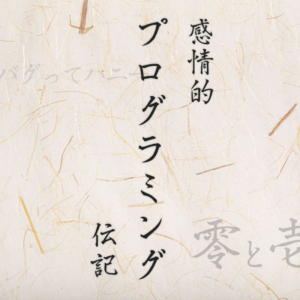 感情的
プログラミング
伝記
バグってハニー
零と壱